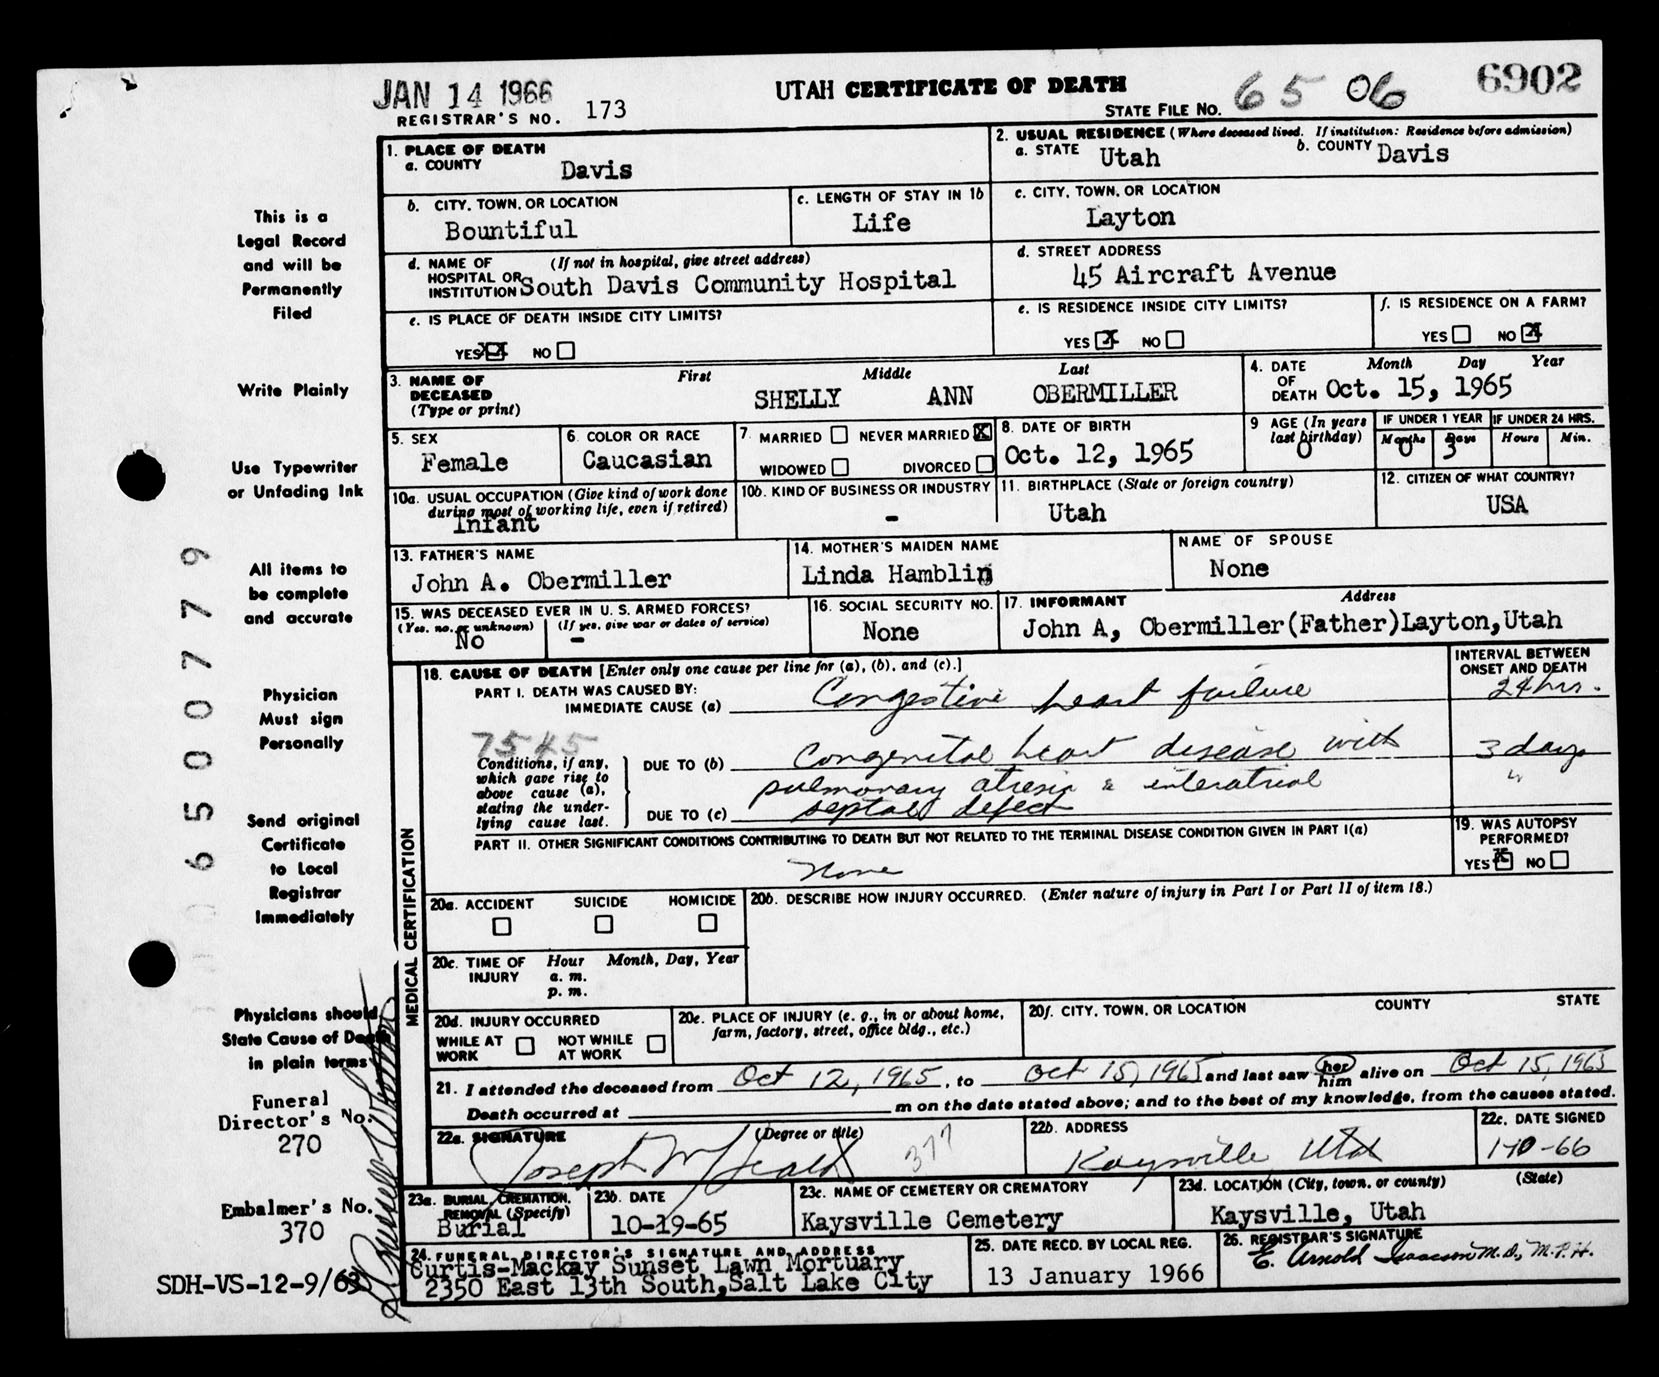 JAN 14 1966
REGISTRAR'S NO. 173
UTAH CERTIFICATE OF DEATH
STATE FILE NO. 65 06 6902
This is a
Legal Record
and will be
Permanently
Filed
Write Plainly
Use Typewriter
or Unfading Ink
All items to
be complete
and accurate
Physician
Must sign
Personally
Send original
Certificate
to Local
Registrar
Immediately
Physicians should
State Cause of Death
in plain terms
Funeral
Director's No.
270
Embalmer's No.
370
SDH-VS-12-9/63
65 00779
1. PLACE OF DEATH
a. COUNTY Davis
2. USUAL RESIDENCE (Where deceased lived. If institution: Residence before admission)
a. STATE Utah b. COUNTY Davis
b. CITY, TOWN, OR LOCATION
Bountiful
c. LENGTH OF STAY IN 1b
Life
c. CITY, TOWN, OR LOCATION
Layton
d. NAME OF (If not in hospital, give street address)
HOSPITAL OR
INSTITUTION South Davis Community Hospital
d. STREET ADDRESS
45 Aircraft Avenue
e. IS PLACE OF DEATH INSIDE CITY LIMITS?
YES XX NO
e. IS RESIDENCE INSIDE CITY LIMITS?
YES X NO
f. IS RESIDENCE ON A FARM?
YES NO X
3. NAME OF
DECEASED
(Type or print)
First Middle Last
SHELLY ANN OBERMILLER
4. DATE Month Day Year
OF
DEATH Oct. 15, 1965
5. SEX
Female
6. COLOR OR RACE
Caucasian
7. MARRIED NEVER MARRIED X
WIDOWED DIVORCED
8. DATE OF BIRTH
Oct. 12, 1965
9 AGE (In years
last birthday)
0
IF UNDER 1 YEAR
Months Days
0 3
IF UNDER 24 HRS.
Hours Min.
10a. USUAL OCCUPATION (Give kind of work done
during most of working life, even if retired)
Infant
10b. KIND OF BUSINESS OR INDUSTRY
-
11. BIRTHPLACE (State or foreign country)
Utah
12. CITIZEN OF WHAT COUNTRY?
USA
13. FATHER'S NAME
John A. Obermiller
14. MOTHER'S MAIDEN NAME
Linda Hamblin
NAME OF SPOUSE
None
15. WAS DECEASED EVER IN U. S. ARMED FORCES?
(Yes, no, or unknown) (If yes, give war or dates of service)
No -
16. SOCIAL SECURITY NO.
None
17. INFORMANT Address
John A, Obermiller(Father)Layton,Utah
MEDICAL CERTIFICATION
18. CAUSE OF DEATH [Enter only one cause per line for (a), (b), and (c).]
INTERVAL BETWEEN
ONSET AND DEATH
PART I. DEATH WAS CAUSED BY:
IMMEDIATE CAUSE (a) Congestive heart failure 24 hrs.
7545
Conditions, if any,
which gave rise to
above cause (a),
stating the under-
lying cause last.
DUE TO (b) Congenital heart disease with 3 days
pulmonary atresia & interatrial "
DUE TO (c) septal defect
PART II. OTHER SIGNIFICANT CONDITIONS CONTRIBUTING TO DEATH BUT NOT RELATED TO THE TERMINAL DISEASE CONDITION GIVEN IN PART I(a)
None
19. WAS AUTOPSY
PERFORMED?
YES X NO
20a. ACCIDENT SUICIDE HOMICIDE
20b. DESCRIBE HOW INJURY OCCURRED. (Enter nature of injury in Part I or Part II of item 18.)
20c. TIME OF Hour Month, Day, Year
INJURY a. m.
p. m.
20d. INJURY OCCURRED
WHILE AT NOT WHILE
WORK AT WORK
20e. PLACE OF INJURY (e. g., in or about home,
farm, factory, street, office bldg., etc.)
20f. CITY, TOWN, OR LOCATION COUNTY STATE
21. I attended the deceased from Oct 12, 1965, to Oct 15, 1965 and last saw her him alive on Oct 15, 1965
Death occurred at m on the date stated above; and to the best of my knowledge, from the causes stated.
22a. SIGNATURE (Degree or title)
Joseph 377
22b. ADDRESS
Kaysville Utah
22c. DATE SIGNED
1-10-66
23a. BURIAL, CREMATION,
REMOVAL (Specify)
Burial
23b. DATE
10-19-65
23c. NAME OF CEMETERY OR CREMATORY
Kaysville Cemetery
23d. LOCATION (City, town, or county) (State)
Kaysville, Utah
24. FUNERAL DIRECTOR'S SIGNATURE AND ADDRESS
Curtis-Mackay Sunset Lawn Mortuary
2350 East 13th South,Salt Lake City
25. DATE RECD. BY LOCAL REG.
13 January 1966
26. REGISTRAR'S SIGNATURE
E. Arnold Isaacson M.D., M.P.H.